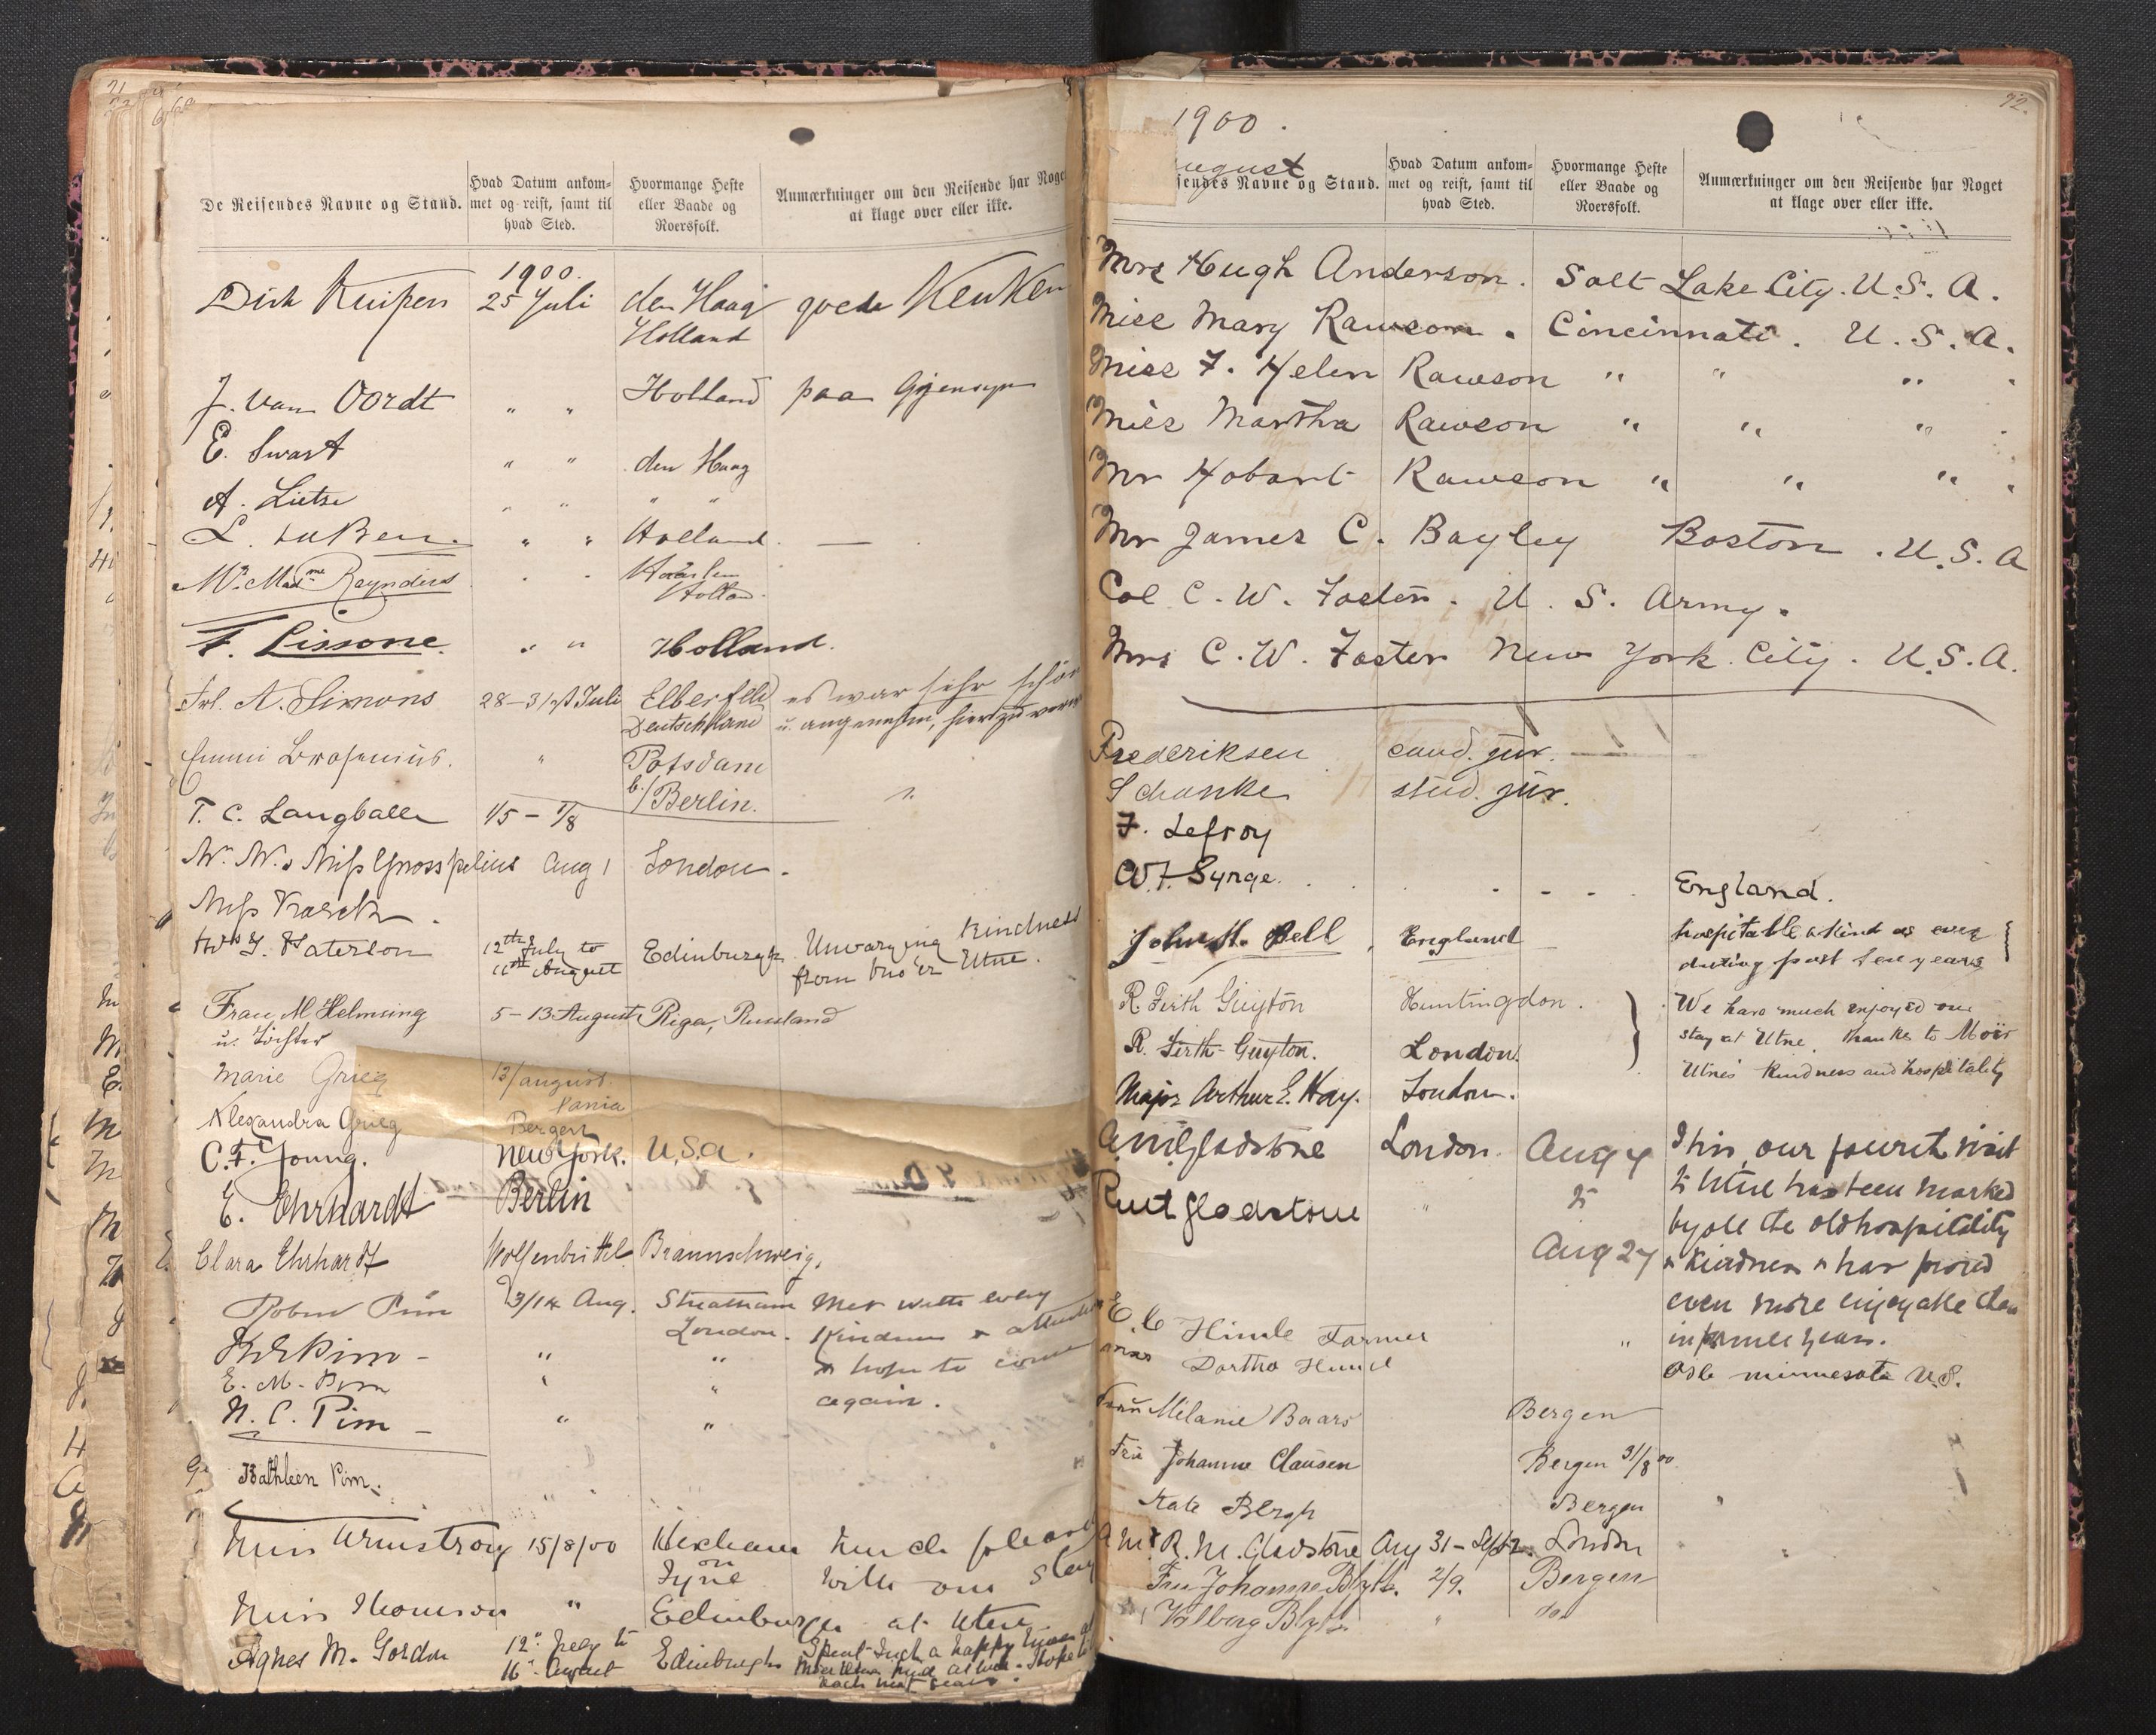 De Reisendes Navne og Stand.
Hvad Datum ankom-
met og reist, samt til
hvad Sted.
Hvormange Heste
eller Baade og
Roersfolk.
Anmærkninger om den Reisende har Noget
at klage over eller ikke.
1900.
Dirk Kuipers 25 Juli den Haag goede Keuken
Holland
J. van Oordt " " Holland paa Gjensyn
E. Swart " " den Haag
A. Lietze " " " "
L. " " Holland. —
Mr. Madme Reynders Haarlem
Holland.
F. Lissone. " " Holland.
Frl. A. Simons 28-31st Juli Elberfeld es war sehr schön
Deutschland u. angenehm, hier zu
Emmi " Potsdam
b./Berlin. "
T. C. Langballe 1/5 - 1/8
Aug 1 London.
Miss
Mrs Y. Paterson 12th July to Edinburgh Unvarying Kindness
11th August from Mo'er Utne.
Frau M Helmsing 5-13 August Riga, Russland
u. Tochter
Marie Grieg 13/august.
Alexandra Grieg Bergen
C.F. Young. New York. U.S.a.
E. Ehrhardt Berlin
Clara Ehrhardt Wolfenbüttel Braunschweig.
Robert Pim 13/14 Aug. Streatham Met with every
London. Kindness &
Pim - " " & hope to come
E. M. Pim " " again.
N. C. Pim - " "
Kathleen Pim. " "
Miss Armstrong 15/8/00 Hexham Much pleased
on
Tyne With our stay
Miss Thomson " Edinburgh at Utne
Agnes M. Gordon 12th July to Edinburgh Spent such a happy time
16th August
back next year.
72.
1900.
ugust
sendes Navne og Stand.
Hvad Datum ankom-
met og reist, samt til
hvad Sted.
Hvormange Heste
eller Baade og
Roersfolk.
Anmærkninger om den Reisende har Noget
at klage over eller ikke.
Mrs Hugh Anderson. Salt Lake City. U.S.A.
Miss Mary Rawson. Cincinnati. U.S.A.
Miss F. Helen Rawson " " "
Miss Martha Rawson " " "
Mr Hobart Rawson " " "
Mr James C. Bayley Boston. U.S.A
Col C. W. Foster. U. S. Army.
Mrs C. W. Foster New York City. U.S.A.
Frederiksen cand. jur.
Schanke stud. jur.
F. Lefroy
W.F. Synge. England.
John H. Bell, England hospitable & kind as ever
during past ten years
R Firth Guyton Huntingdon. We have much enjoyed our
R. Firth-Guyton. London. stay at Utne, thanks to Moër
Utne's kindness and hospitality
Major Arthur E. Hay. London.
A.M. Gladstone London. Aug 4 This, our fourth visit
to
Rut Gladstone " to Utne has been marked
by all the old hospitality
Aug 27 & kindness & has proved
even more enjoyable than
in former years.
E. C Himle Farmer "
Mrs Dortha Himle Oslo minnesota U.S.
Fru Milanie Baars Bergen
Fru Johanne Clausen Bergen 31/8 00
Kate Bergh Bergen "
A M & R. M. Gladstone Aug 31 - Sept 2. London
Fru Johanne Blytt. 2/9. Bergen
Valborg Blytt " do